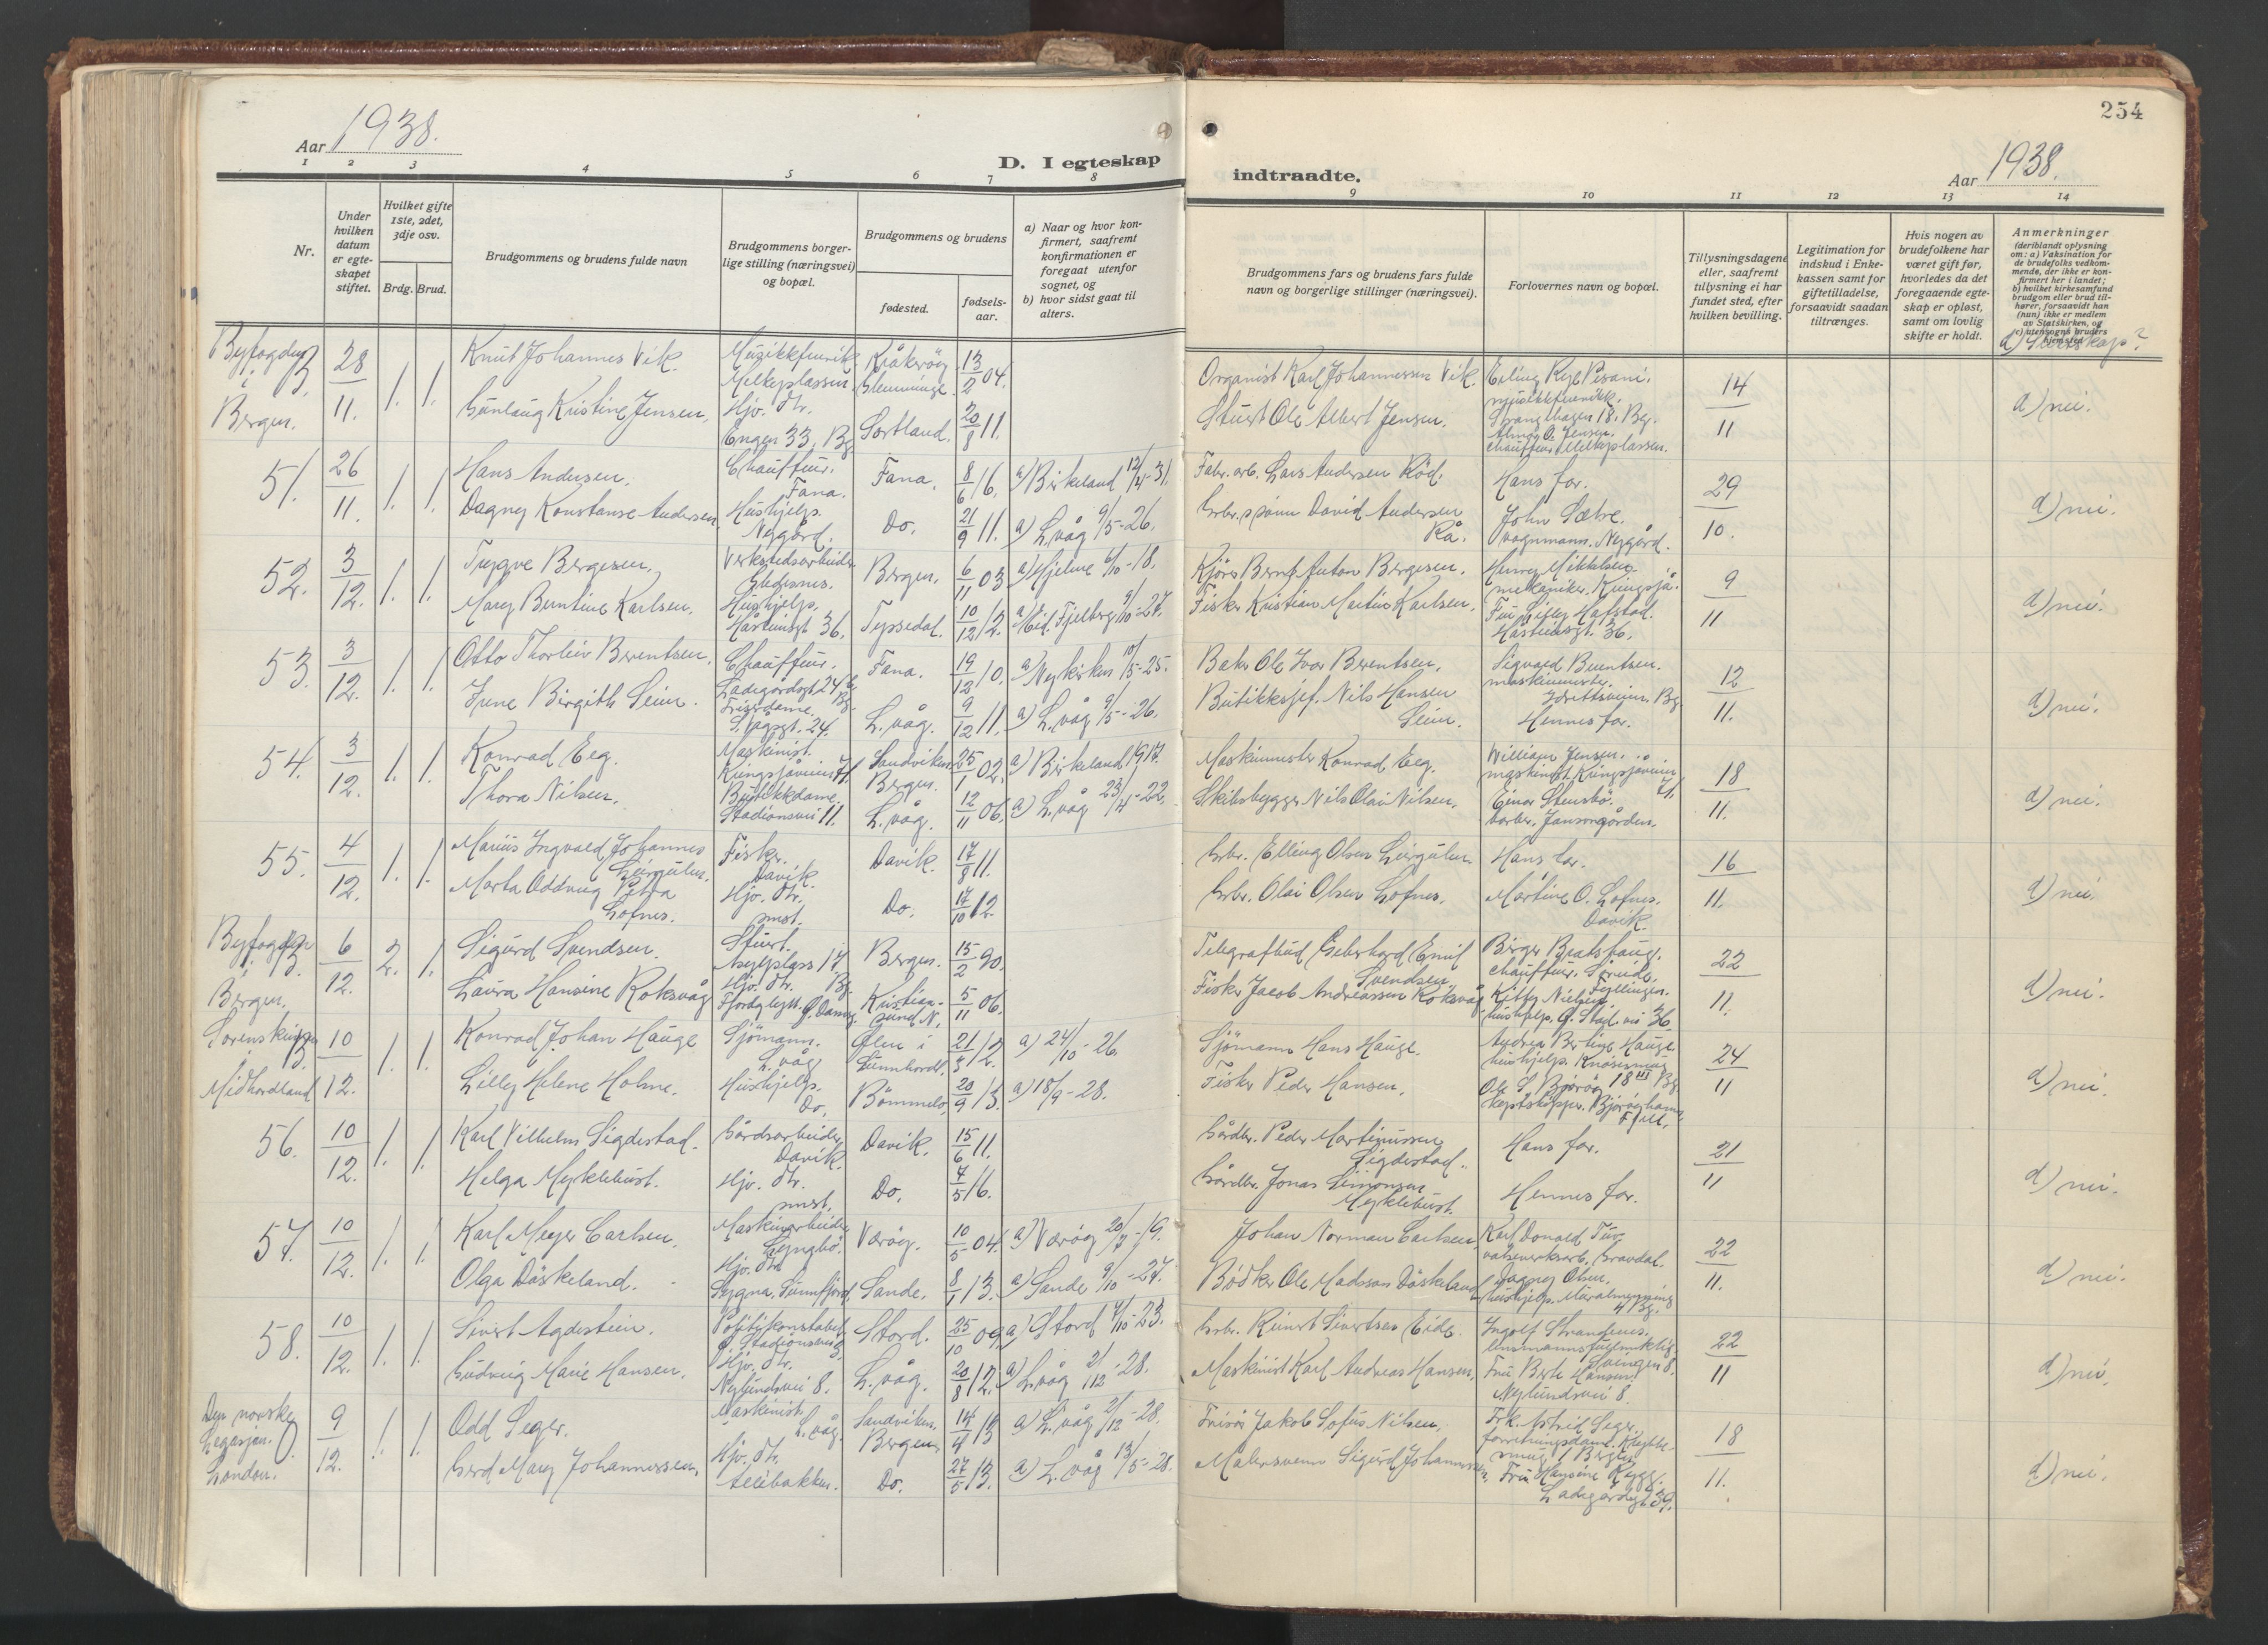 Aar 1938.
D. I egteskap
1 2 3 4 5 6 7 8
Nr.
Under hvilken datum er egteskapet stiftet.
Hvilket gifte 1ste, 2det, 3dje osv.
Brdg. Brud.
Brudgommens og brudens fulde navn
Brudgommens borgerlige stilling (næringsvei) og bopæl.
Brudgommens og brudens
fødested. fødselsaar.
a) Naar og hvor konfirmert, saafremt konfirmationen er foregaat utenfor sognet, og
b) hvor sidst gaat til alters.
Byfogden i B. Bergen. 28/11. 1. 1.
Knut Johannes Vik. Kråkerøy 13/2 04.
Melkeplassen
Gunlaug Kristine Jensen. Hjv. dtr. Engen 33. Bg Sortland. 20/8 11.
51. 26/11. 1. 1.
Hans Andersen. Chauffeur. Fana. Fana. 8/6 16. a) Birkeland 12/4-31.
Dagny Konstanse Andersen Hushjelp. Nygård. Do. 21/9 11. a) L.våg 9/5-26.
52. 3/12. 1. 1.
Trygve Bergesen. Verkstedsarbeider Bergen. 6/11 03 a) Hjelme 6/10-18.
Mary Berntine Karlsen. Hushjelp. 36. Tyssedal. 10/12 12. a) Fjelberg 9/10-27.
53. 3/12. 1. 1.
Otto Thorleiv Berentsen. Chauffeur. Ladegårdsgt 24 Bg. Fana. 19/12 10. a) Nykirken 10/5-25.
June Birgith Seim. Friserdame. L. våg. 9/12 11. a) L. våg 9/5-26.
54. 3/12. 1. 1.
Konrad Eeg. Maskinist. Sandviken Bergen. 25/1 02. a) Birkeland 1917.
Thora Nilsen. Butikkdame. Stadionsvei 11. L. våg. 12/11 06. a) L. våg 23/4-22.
55. 4/12. 1. 1.
Marius Ingvald Johannes Fisker. Davik. Davik. 17/8 11.
Marta Oddveig Petra Hjv. dtr. smst. Do. 17/10 12.
Byfogden i B. Bergen. 6/12. 2. 1.
Sigurd Svendsen. Stuert. Asylplass 17 Bg. Bergen. 15/2 90.
Laura Hansine Roksvåg Hjv. dtr. Kristiansund N. 5/11 06.
Sorenskriver B. Midhordland 10/12. 1. 1.
Konrad Johan Hauge Sjømann. L. våg Ølen i Sunnhordl. 21/3 12. a) 24/10-26.
Lilly Helene Holme. Hushjelp. Do. Bömmelo. 20/9 13. a) 18/9-28.
56. 10/12. 1. 1.
Karl Vilhelm Sigdestad. Gårdsarbeider Davik. Davik. 15/6 11.
Helga Myklebust. Hjv. dtr. smst. Do. 7/5 16.
57. 10/12. 1. 1.
Karl Meyer Carlsen. Maskinarbeider Lyngbö. Værøy. 10/5 04. a) Værøy 20/7-19.
Olga Döskeland. Hjv. dtr. Sygna, Sunnfjord. Sande. 8/1 13. a) Sande 9/10-27.
58. 10/12. 1. 1.
Sivert Agdestein. Politikonstabel Stord. 25/10 09. a) Stord 7/10-23.
Gudveig Marie Hansen. Hjv. dtr. Nylundsvei 8. L. våg. 20/8 12. a) L.våg 2/12-28.
Den norske Legasjon. London. 9/12. 1. 1.
Odd Seger. Maskinist. L. våg. Sandviken. Bergen. 14/4 13 a) L. våg 2/12-28.
Gerd Mary Johannessen. Hjv. dtr. Do. 27/5 13. a) L. våg 13/5-28.
254
indtraadte.
Aar 1938.
9 10 11 12 13 14
Brudgommens fars og brudens fars fulde navn og borgerlige stillinger (næringsvei).
Forlovernes navn og bopæl.
Tillysningsdagene eller, saafremt tillysning ei har fundet sted, efter hvilken bevilling.
Legitimation for indskud i Enkekassen samt for giftetilladelse, forsaavidt saadan tiltrænges.
Hvis nogen av brudefolkene har været gift før, hvorledes da det foregaaende egteskap er opløst, samt om lovlig skifte er holdt.
Anmerkninger
(deriblandt oplysning om: a) Vaksination for de brudefolks vedkommende, der ikke er konfirmert her i landet;
b) hvilket kirkesamfund brudgom eller brud tilhører, forsaavidt han (hun) ikke er medlem av Statskirken, og
c) utensogns bruders hjemsted
d) Slektskap?
Organist Karl Johannessen Vik. 14/11 d) nei.
Stuert Ole Albert Jensen. Chauffeur Melkeplassen.
Fabr. arb. Lars Andersen Röd. Hans far. 29/10. d) nei.
David Andersen Rå. John Sætre. vognmann. Nygård.
Kjører Bernt Anton Bergesen. Henry Mikkelsen. mekaniker. Kringsjå. 9/11 d) nei.
Fisker Kristian Martin Karlsen. Fru Lilly Hafstad. 36.
Baker Ole Ivar Berentsen. Sigvard Berentsen. maskinmester. Idrettsveien. Bg 12/11. d) nei.
Butikksjef. Nils Hansen Seim. Hennes far.
Maskinmester Konrad Eeg. William Jensen. maskinist Kringsjåveien 71. 18/11. d) nei.
Skibsbygger Nils Olai Nilsen. Einar Stensbö. barber. Jansongården.
Gbr. Elling Olsen Hans far. 16/11. d) nei.
Gbr. Olai Olsen Martine O. Davik.
Telegrafbud Gebhard Emil Svendsen. Birger chauffeur. Fyllingen. 22/11. d) nei.
Fisker Jacob Andreassen Roksvåg Kitty Nielsen. hushjelp. 36
Sjømann Hans Hauge. Andrea Berline Hauge hushjelp. Knøsesmug 18 III Bg 24/11 d) nei.
Fisker Peder Hansen. Ole S. Björöy Björöyhamn Fjell.
Gårdbr. Peder Martinussen Sigdestad. Hans far. 21/11 d) nei.
Gårdbr. Jonas Simonsen Myklebust. Hennes far.
Johan Norman Carlsen. Karl Donald valseverksarb. Gravdal. 22/11. d) nei.
Bødker Ole Madssen Döskeland Dagny Olsen. hushjelp. Muralmenning 4 Bg.
Gbr. Reinert Sivertsen Eide. Ingolf Strandenes. lensmannsfullmektig 22/11 d) nei.
Maskinist Karl Andreas Hansen. Fru Berte Hansen. Nylundsvei 8.
Frisør Jakob Sofus Nilsen. Frk. Astrid Seger. forretningsdame. Bergen 18/11. d) nei.
Malersvenn Sigurd Johannessen. Fru Hansine Rygg. Ladegårdsgt 39.